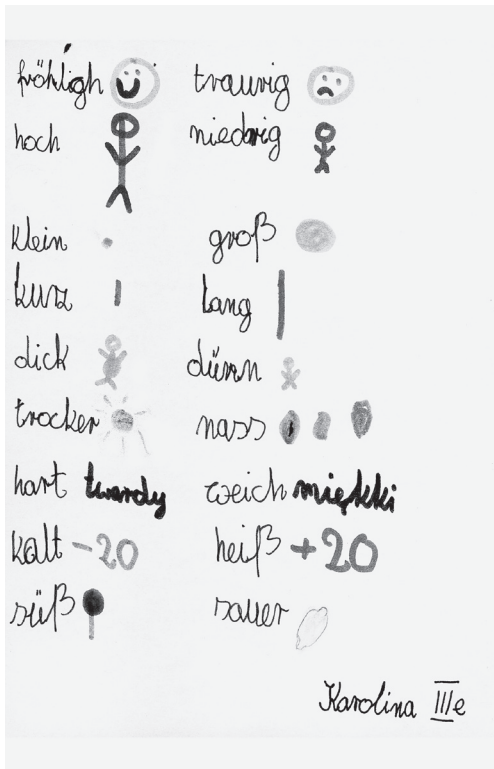 fröhligh traurig
hoch niedrig
klein groß
kurz lang
dick dünn
trocker nass
hart twardy weich miękki
kalt -20 heiß +20
süß sauer
Karolina IIIe